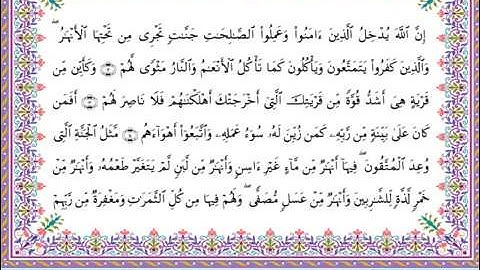 إِنَّ ٱللَّهَ يُدْخِلُ ٱلَّذِينَ ءَامَنُوا۟ وَعَمِلُوا۟ ٱلصَّـٰلِحَـٰتِ جَنَّـٰتٍ تَجْرِى مِن تَحْتِهَا ٱلْأَنْهَـٰرُ ۖ
وَٱلَّذِينَ كَفَرُوا۟ يَتَمَتَّعُونَ وَيَأْكُلُونَ كَمَا تَأْكُلُ ٱلْأَنْعَـٰمُ وَٱلنَّارُ مَثْوًى لَّهُمْ ۝ وَكَأَيِّن مِّن
قَرْيَةٍ هِىَ أَشَدُّ قُوَّةً مِّن قَرْيَتِكَ ٱلَّتِىٓ أَخْرَجَتْكَ أَهْلَكْنَـٰهُمْ فَلَا نَاصِرَ لَهُمْ ۝ أَفَمَن
كَانَ عَلَىٰ بَيِّنَةٍ مِّن رَّبِّهِۦ كَمَن زُيِّنَ لَهُۥ سُوٓءُ عَمَلِهِۦ وَٱتَّبَعُوٓا۟ أَهْوَآءَهُم ۝ مَّثَلُ ٱلْجَنَّةِ ٱلَّتِى
وُعِدَ ٱلْمُتَّقُونَ ۖ فِيهَآ أَنْهَـٰرٌ مِّن مَّآءٍ غَيْرِ ءَاسِنٍ وَأَنْهَـٰرٌ مِّن لَّبَنٍ لَّمْ يَتَغَيَّرْ طَعْمُهُۥ وَأَنْهَـٰرٌ مِّنْ
خَمْرٍ لَّذَّةٍ لِّلشَّـٰرِبِينَ وَأَنْهَـٰرٌ مِّنْ عَسَلٍ مُّصَفًّى ۖ وَلَهُمْ فِيهَا مِن كُلِّ ٱلثَّمَرَٰتِ وَمَغْفِرَةٌ مِّن رَّبِّهِمْ